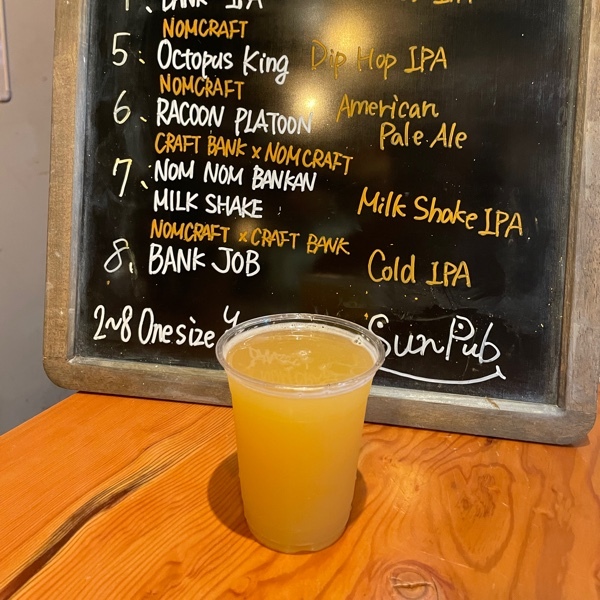 BANK IPA
IPA
NOMCRAFT
5、Octopus King Dip Hop IPA
NOMCRAFT
6、RACOON PLATOON American
Pale Ale
CRAFT BANK x NOMCRAFT
7、NOM NOM BANKAN
MILK SHAKE Milk Shake IPA
NOMCRAFT x CRAFT BANK
8、BANK JOB Cold IPA
2~8 One size
SunPub